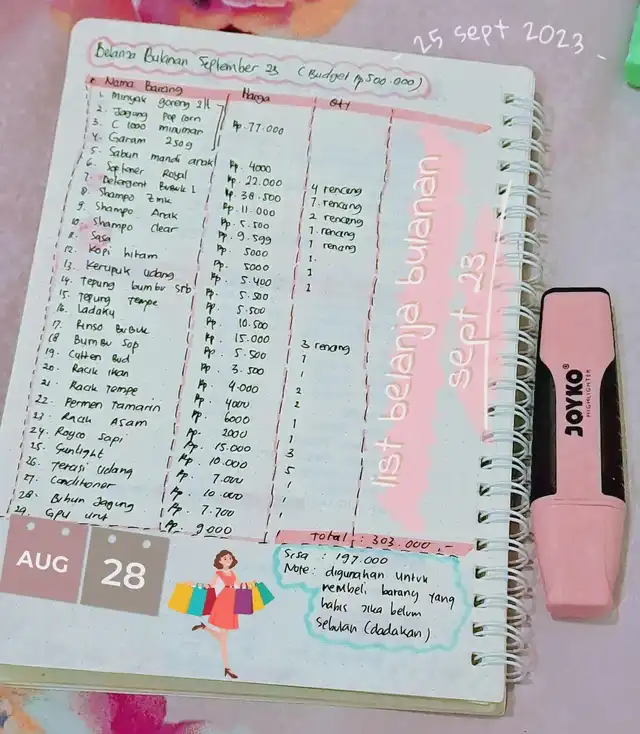 25 sept 2023
Belanja Bulanan September 23 (Budget Rp 500.000)
Nama Barang Harga Qty
1. Minyak goreng 2lt
2. Jagung Pop corn
3. C 1000 minuman
4. Garam 250g
Rp. 77.000
5. Sabun mandi anak Rp. 4000
6. Softener Royal Rp. 22.000 4 renceng
7. Detergent Bubuk 1 Rp. 38.500 7. renceng
8. Shampo Zink Rp. 11.000 2 renceng
9. Shampo Anak Rp. 5.500 1. renceng
10. Shampo Clear Rp. 9.599 1 renceng
11. Sasa Rp. 5000 1
12. Kopi hitam Rp. 5000 1
13. Kerupuk udang Rp. 5.400 1
14. Tepung bumbu srb Rp. 5.500
15. Tepung Tempe Rp. 5.500
16. Ladaku Rp. 10.500
17. Rinso Bubuk Rp. 15.000 3 renceng
18 Bumbu Sop Rp. 5.500 1
19. Cutten Bud Rp. 3.500 1
20. Racik Ikan Rp. 4.000 2
21. Racik Tempe Rp. 4000 2
22. Permen Tamarin Rp. 6000 1
23. Racik Asam Rp. 2000 1
24. Royco Sapi Rp. 15.000 3
25. Sunlight Rp. 10.000 5
26. Terasi Udang Rp. 7.000 1
27. Conditioner Rp. 10.000 1
28. Bihun Jagung Rp. 7.700 1
29. GPU urut Rp. 9.000 1
Total : 303.000,-
Sisa : 197.000
Note : digunakan untuk
membeli barang yang
habis jika belum
sebulan (dadakan)
list belanja bulanan
sept 23
AUG
28
JOYKO®
HIGHLIGHTER